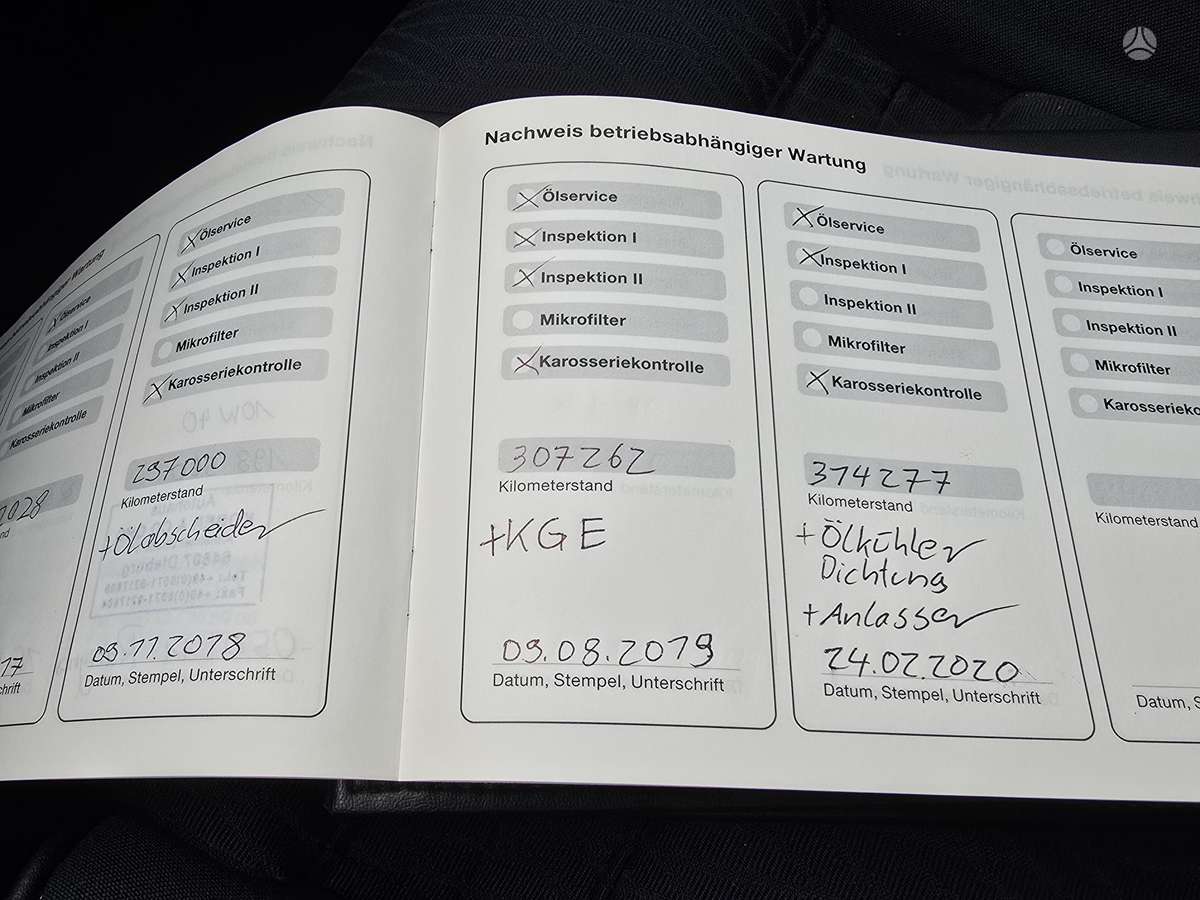 Nachweis betriebsabhängiger Wartung
Wartung
Ölservice
Inspektion I
Inspektion II
Mikrofilter
Karosseriekontrolle
Ölservice
Inspektion I
Inspektion II
Mikrofilter
Karosseriekontrolle
297000
Kilometerstand
+Ölabscheider
09.11.2018
Datum, Stempel, Unterschrift
Ölservice
Inspektion I
Inspektion II
Mikrofilter
Karosseriekontrolle
307262
Kilometerstand
+KGE
09.08.2019
Datum, Stempel, Unterschrift
Ölservice
Inspektion I
Inspektion II
Mikrofilter
Karosseriekontrolle
314277
Kilometerstand
+Ölkühler
Dichtung
+Anlasser
24.02.2020
Datum, Stempel, Unterschrift
Ölservice
Inspektion I
Inspektion II
Mikrofilter
Kilometerstand
Datum,